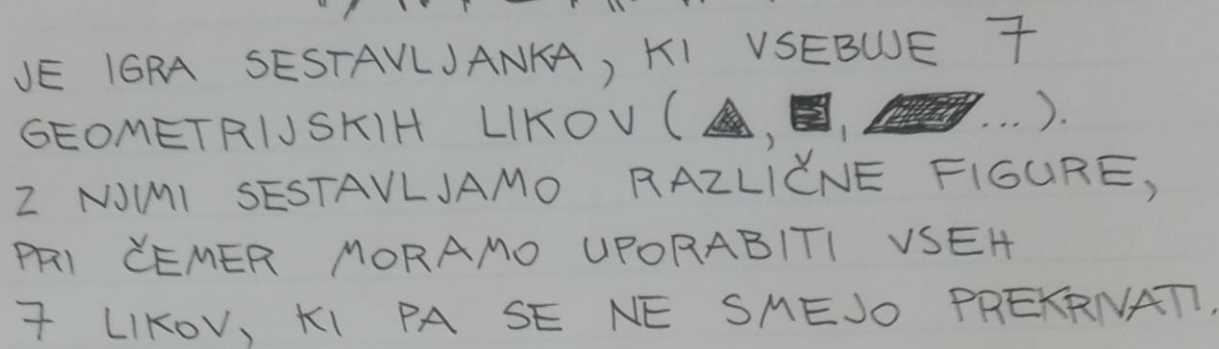 JE IGRA SESTAVLJANKA, KI VSEBUJE 7
GEOMETRIJSKIH LIKOV (▲, ■, ▰...).
Z NJIMI SESTAVLJAMO RAZLIČNE FIGURE,
PRI ČEMER MORAMO UPORABITI VSEH
7 LIKOV, KI PA SE NE SMEJO PREKRIVATI.